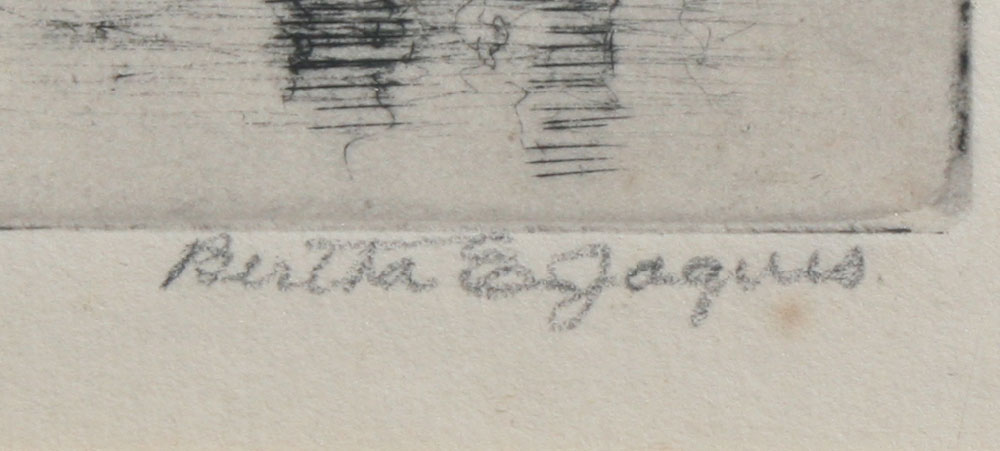 Bertha E. Jaques.